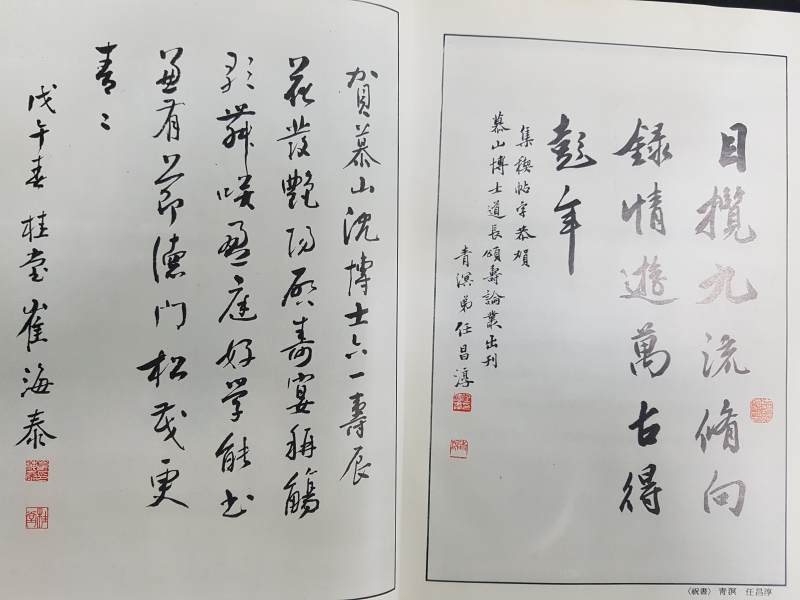 目攬九流脩向
錄情遊萬古得
彭年
集稧帖字恭賀
慕山博士道長頌壽論叢出刊
青溟弟任昌淳
〈祝書〉 靑溟 任昌淳
賀慕山沈博士六一壽辰
花發艷陽啓壽宴稱觴
彩舞咲盈庭好學能書
兼有節德門松茂更
青〻
戊午春 桂堂 崔海泰